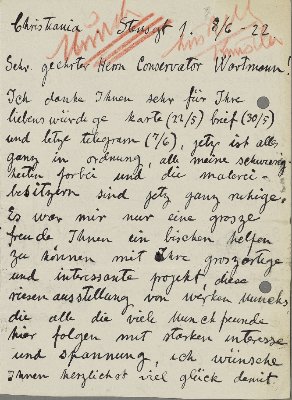 Christiania Stensgt 1. 8/6 - 22.
Munch
Künstler
Sehr geehrter Herrn Conservator Wartmann!
Ich danke Ihnen sehr für Ihre
liebenswürdige karte (22/5) brief (30/5)
und letze telegram (7/6), jetz ist alles
ganz in ordnung, alle meine schwierig-
heiten forbei und die malerei-
besitzern sind jetz ganz ruhige.
Es war mir nur eine grosze
freude Ihnen ein bischen helfen
zu können mit Ihre groszartige
und interessante projekt, diese
riesenausstellung von werken Munchs
die alle die viel Munchfreunde
hier folgen mit starken interesse
und spannung, ich wünsche
Ihnen herzlichst viel glück damit.